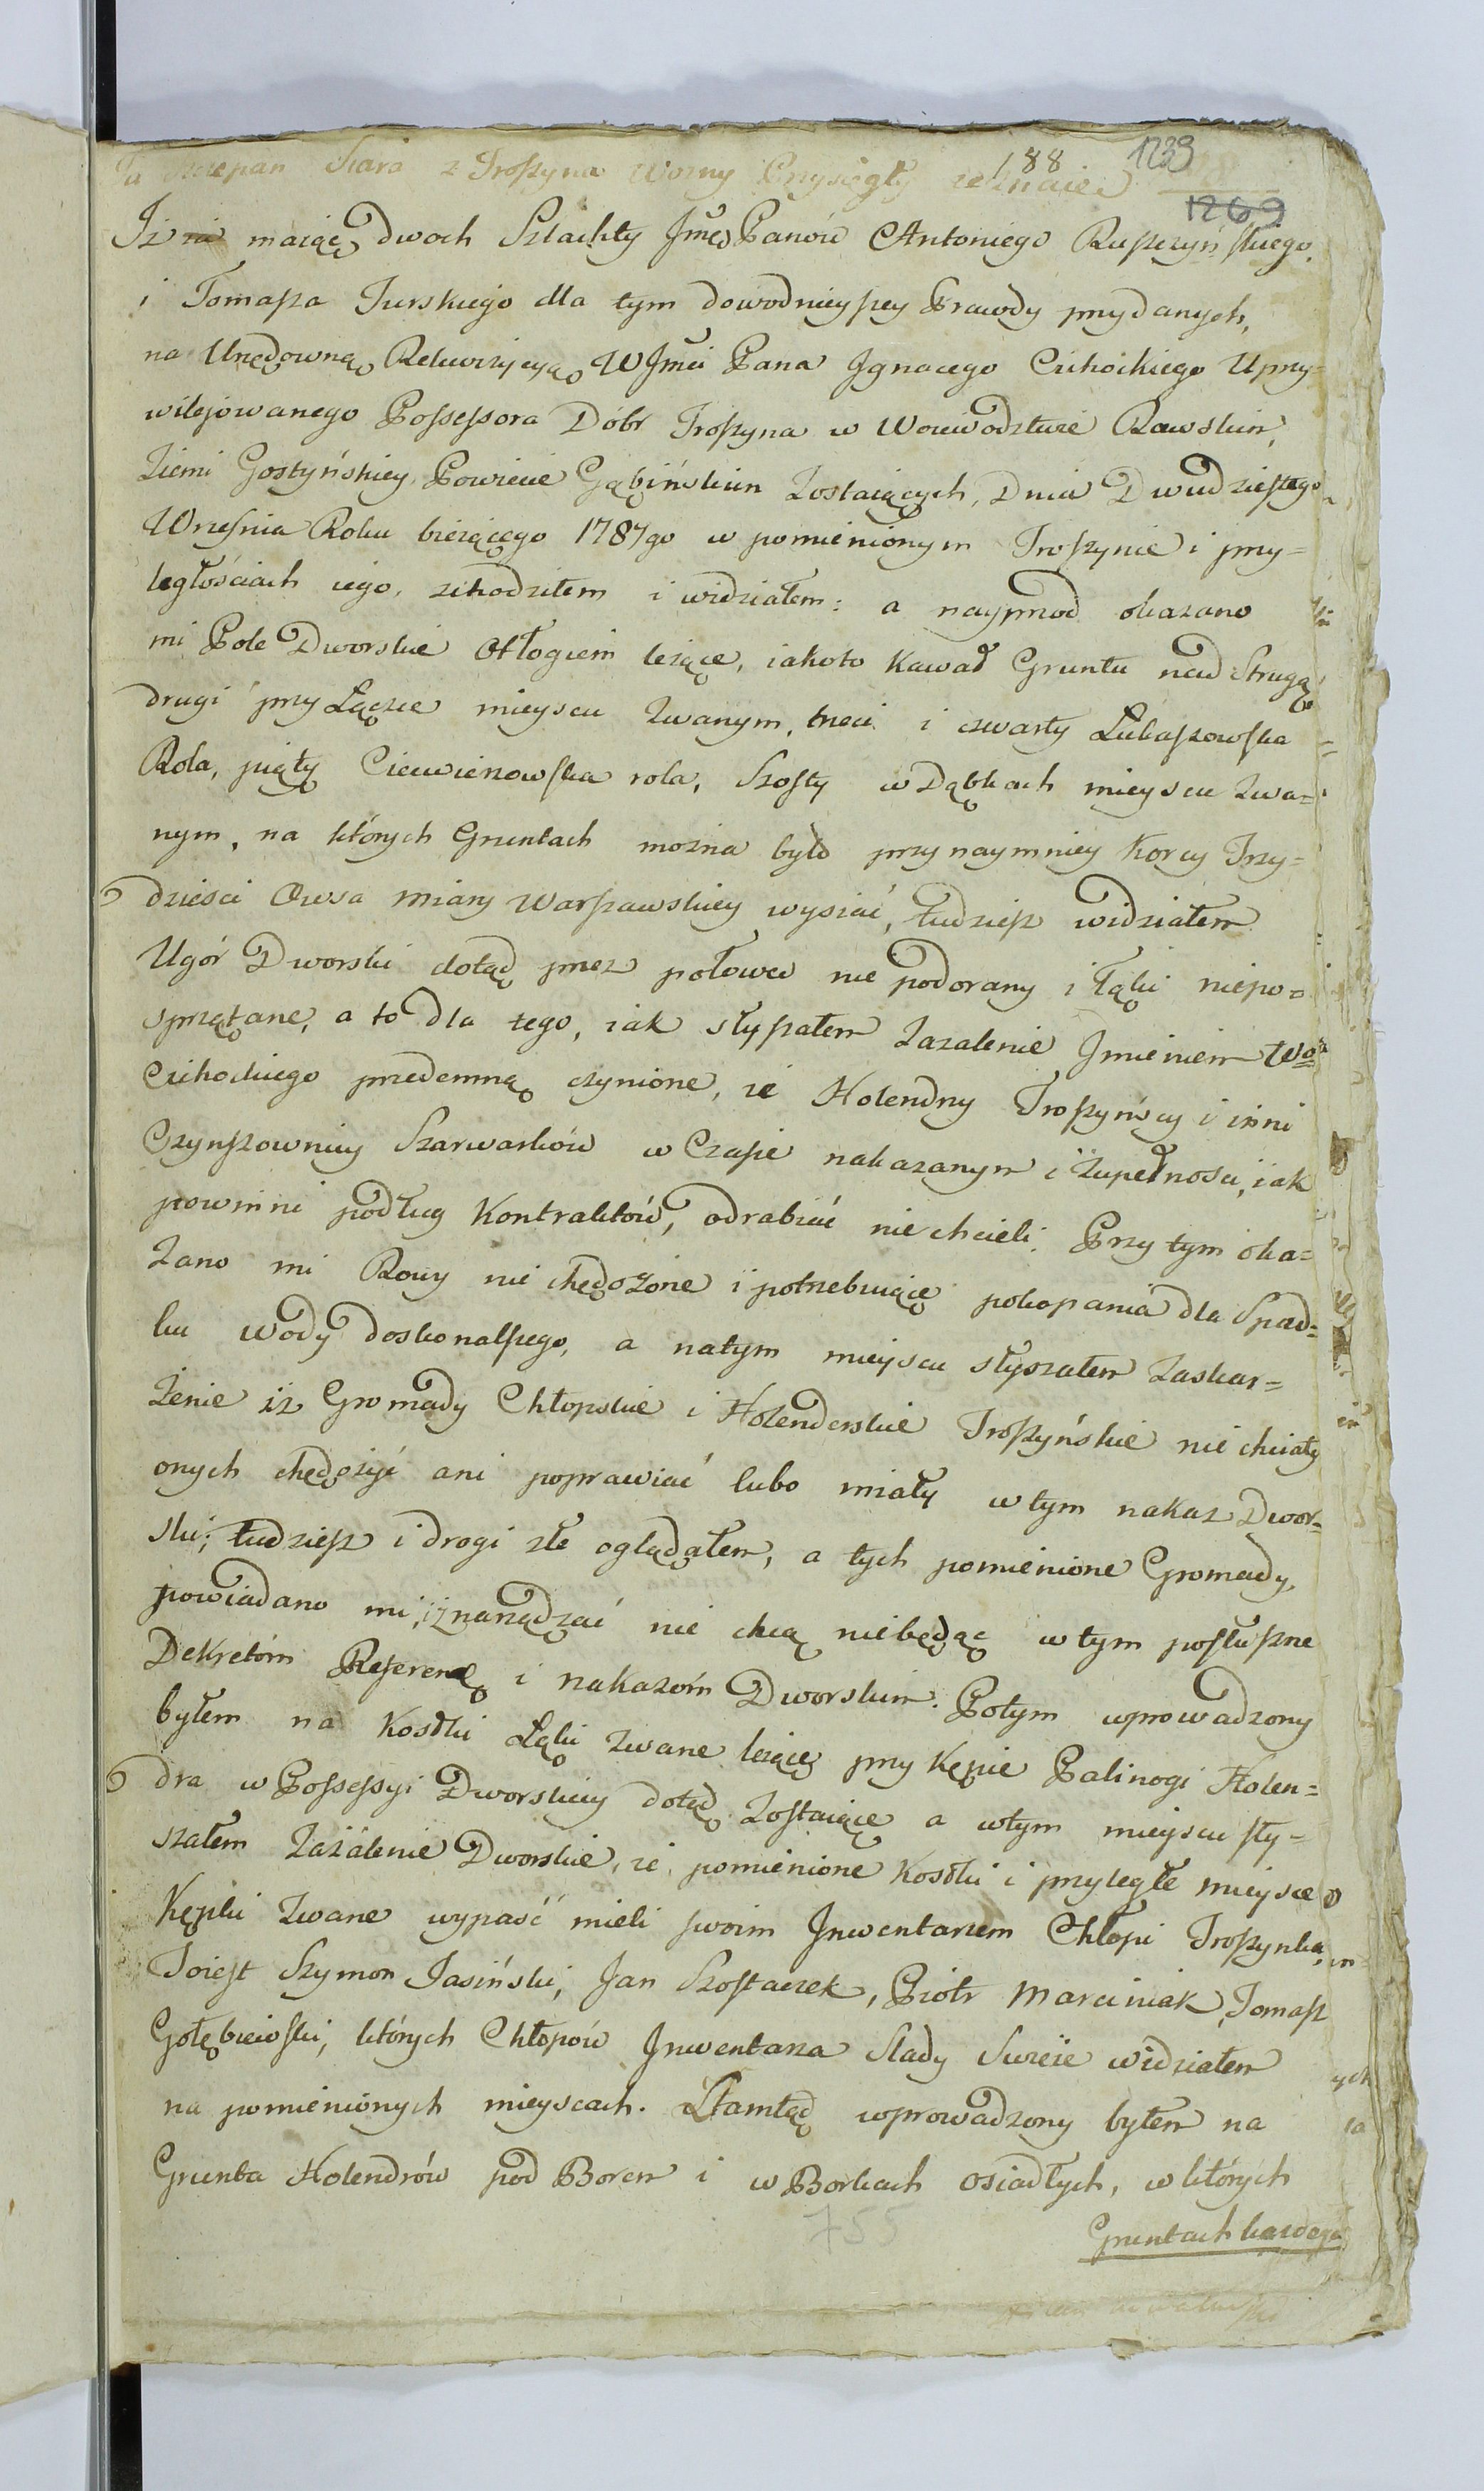 188 1239
Ja Szczepan Stara z Troszyna Wozny Przysięgły zeznaię
1269
Iż maiąc dwoch Szlachty Jmć Panów Antoniego Ruszczyńskiego,
i Tomasza Turskiego dla tym dowodnieyszey Prawdy przydanych,
na Urzędowną Rekwizycyą WJmci Pana Ignacego Cichockiego Uprzy=
wilejowanego Possessora Dóbr Troszyna w Woiewodztwie Rawskim,
Ziemi Gostyńskiey Powiecie Gąbińskim Zostaiących, Dnia Dwudziestego
Wrzesnia Roku bieżącego 1787go w pomienionym Troszynie i przy=
ległościach iego, zchodziłem i widziałem: a nayprzod okazano
mi Pole Dworskie Otłogiem leżące, iakoto Kawał Gruntu nad Strugą
drugi przy Łączce mieyscu Zwanym, trzeci i czwarty Łukaszowska
Rola, piąty Ciewierzowska rola, Szosty w Dąbkach mieyscu Zwa=
nym, na których Gruntach można było przynaymniey Korcy Trzy=
dzieści Owsa miary Warszawskiey wysiać, tudziesz widziałem
Ugór Dworski dotąd przez połowę nie podorany i łąki niepo=
sprzątane, a to dla tego, iak słyszałem Zażalenie Imieniem Wo
Cichockiego przedemną czynione, że Holendrzy Troszyńscy i inni
Czynszownicy Szarwarków w Czasie nakazanym i Zupełności, iak
powinni podług Kontraktów, odrabiać nie chcieli. Przy tym oka=
zano mi Rowy nie chędożone i potrzebuiące pokopania dla Spad=
ku wody doskonalszego, a natym mieyscu słyszałem Zaskar=
żenie iż Gromady Chłopskie i Holenderskie Troszyńskie nie chciały
onych chędożyć ani poprawiać lubo miały w tym nakaz Dwor=
ski; tudziesz i drogi złe oglądałem, a tych pomienione Gromady,
powiadano mi, iż narządzać nie chcą niebędąc w tym posłuszne
Dekretóm Referenc i nakazóm Dworskim. Potym wprowadzony
byłem na Kostki Łąki Zwane leżące przy Kępie Palinogi Holen=
dra w Possessyi Dworskiey dotąd Zostaiące a w tym mieyscu sły=
szałem Zażalenie Dworskie, że pomienione Kostki i przyległe mieysce
Kępki Zwane wypaść mieli swoim Inwentarzem Chłopi Troszynka,
Toiest Szymon Jasiński, Jan Szostaczek, Piotr Marciniak, Tomasz
Gołębiewski, których Chłopów Inwentarza Slady Swieże widziałem
na pomienionych mieyscach. Ztamtąd wprowadzony byłem na
Grunta Holendrów pod Borem i w Borkach osiadłych, w których
Gruntach każdego
755